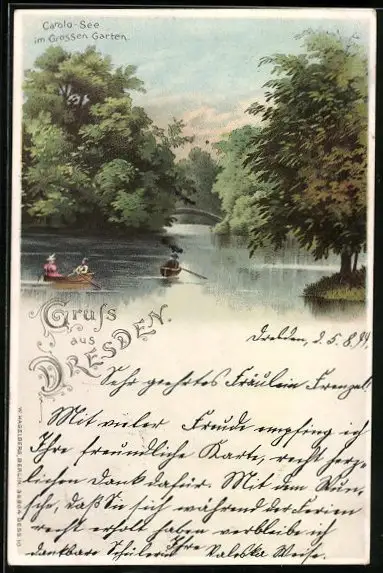 Carola-See
im Grossen Garten.
Gruss
aus
DRESDEN.
Dresden, 2.5.8.99.
Sehr geehrtes Fräulein Frenzel!
Mit vieler Freude empfing ich
Ihre freundliche Karte, recht herz-
lichen Dank dafür. Mit dem Wun-
sche, daß Sie sich während der Ferien
recht erholt haben verbleibe ich
Ihre
dankbare Schülerin Valeska Weise.
W. HAGELBERG, BERLIN.